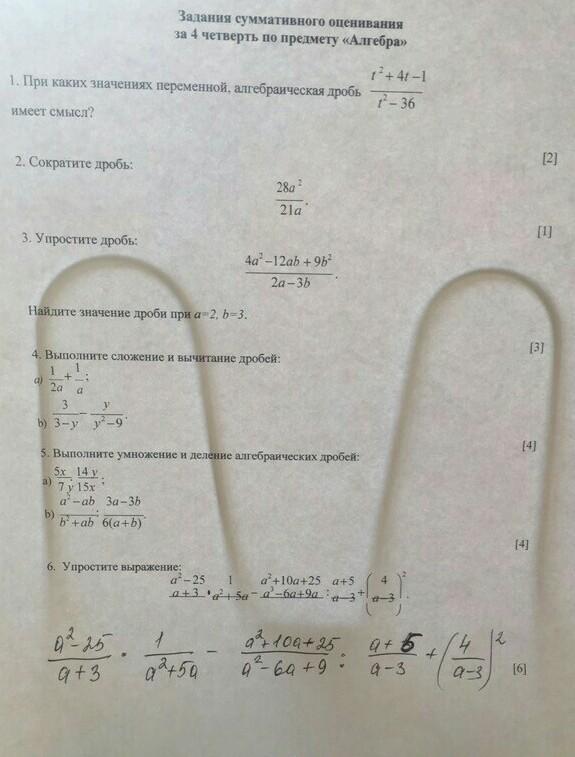 Задания суммативного оценивания
за 4 четверть по предмету «Алгебра»
1. При каких значениях переменной, алгебраическая дробь (t² + 4t − 1)/(t² − 36)
имеет смысл?
[2]
2. Сократите дробь:
28a²/21a.
[1]
3. Упростите дробь:
(4a² − 12ab + 9b²)/(2a − 3b).
Найдите значение дроби при a=2, b=3.
[3]
4. Выполните сложение и вычитание дробей:
a) 1/2a + 1/a;
b) 3/(3 − y) − y/(y² − 9).
[4]
5. Выполните умножение и деление алгебраических дробей:
a) 5x/7y · 14y/15x;
b) (a² − ab)/(b² + ab) : (3a − 3b)/6(a + b).
[4]
6. Упростите выражение:
(a² − 25)/(a + 3) · 1/(a² + 5a) − (a² + 10a + 25)/(a³ − 6a + 9a) : (a + 5)/(a − 3) + (4/(a − 3))².
(a² − 25)/(a + 3) · 1/(a² + 5a) − (a² + 10a + 25)/(a² − 6a + 9) : (a + 5)/(a − 3) + (4/(a − 3))²
[6]